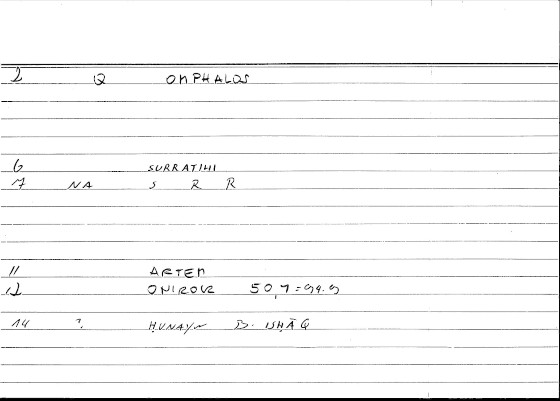 2 Q OMPHALOS
6 SURRATIHI
7 NA S R R
11 ARTEM
12 ONIROCR 50,7=99.9
14 ? ḤUNAYN B. ISḤĀQ